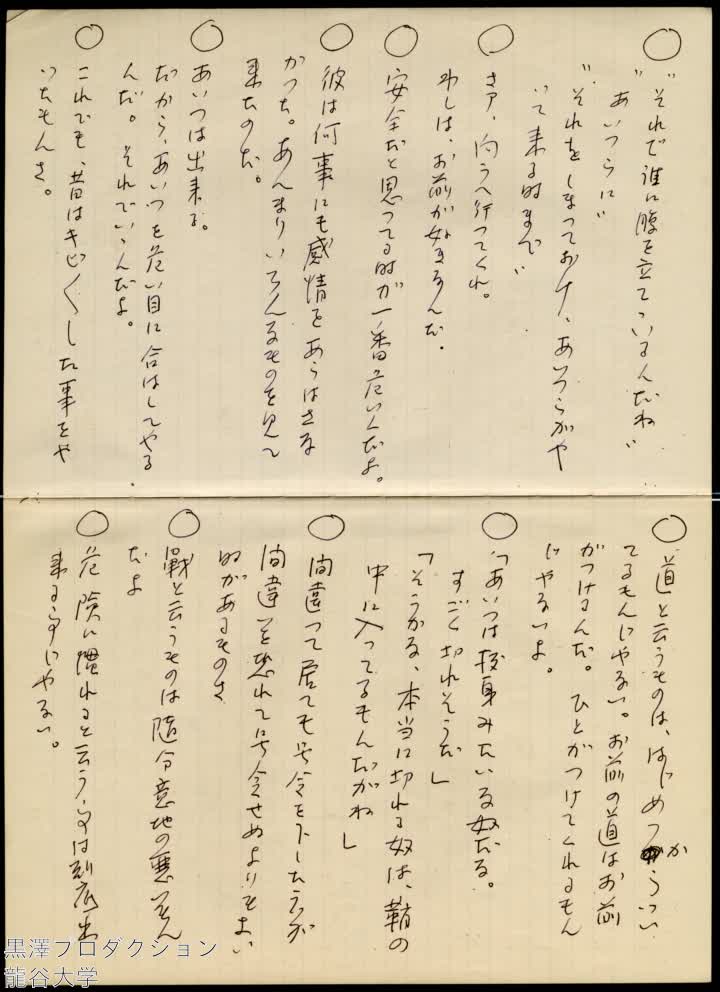 ○ "それで誰に腹を立てゝいるんだね"
"あいつらに"
"それをしまっておけ、あいつらがや
って来る時まで"
○ さア、向うへ行ってくれ。
わしは、お前が好きなんだ。
○ 安全だと思ってる時が一番危いんだよ。
○ 彼は何事にも感情をあらはさな
かった。あんまりいろんなものを見て
来たのだ。
○ あいつは出来る。
だから、あいつを危い目に合はしてやる
んだ。それでいゝんだよ。
○ これでも、昔はキビ〱した事をや
ったもんさ。
○ 道と云うものは、はじめっからつい
てるもんじゃない。お前の道はお前
がつけるんだ。ひとがつけてくれるもん
じゃないよ。
○ 「あいつは抜身みたいな奴だな。
すごく切れそうだ」
「そうかな、本当に切れる奴は、鞘の
中に入ってるもんだがね」
○ 間違って居ても号令を下した方が
間違を恐れて号令せぬよりもよい
時があるものさ
○ 戦と云うものは随分意地の悪いもん
だよ
○ 危険に慣れると云う事は到底出
来る事じゃない。
黒澤プロダクション
龍谷大学